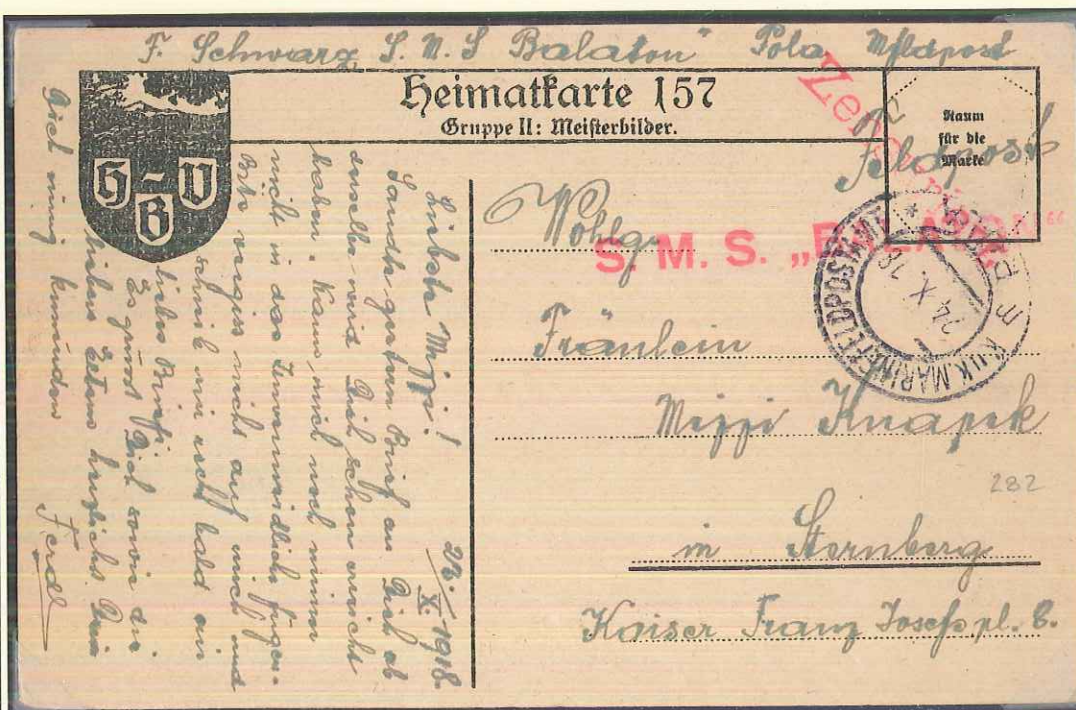 F. Schwarz S. M. S Balaton" Pola Mfldpost
Heimatkarte 157
Gruppe II: Meisterbilder.
Raum
für die
Marke
H-V
B
Feldpost
Zensuriert
S. M. S. „BALATON“
K.u.K. MARINEFELDPOSTAMT * POLA *
24. X. 18
Wohlg.
Fräulein
Mizzi Knapek
282
in Sternberg
Kaiser Franz Josefs pl. 6.
22./X. 1918.
Liebste Mizzi!
Sandte gestern Brief an Dich ob
derselbe wird Dich schon erreicht
haben. Kann mich noch immer
nicht in das Unvermeidliche fügen.
Bitte vergiss nicht auf mich und
schreib mir recht bald ein
liebes Brieferl.
Es grüsst Dich sowie die
lieben Eltern herzlichst Dein
Dich innig
Ferdl